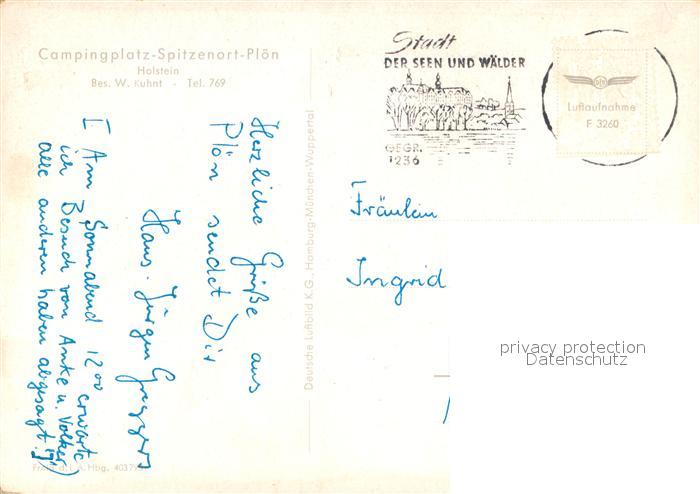 Campingplatz-Spitzenort-Plön
Holstein
Bes. W. Kuhnt - Tel. 769
Stadt
DER SEEN UND WÄLDER
GEGR.
1236
Luftaufnahme
F 3260
Herzliche Grüße aus
Plön sendet Dir
Hans-Jürgen Greggers
I Am Sonnabend 12 00 erwarte
ich Besuch von Anke u. Volker)
alle anderen haben abgesagt.
Deutsche Luftbild K.G., Hamburg-München-Wuppertal
Fräulein
Ingrid
privacy protection
Datenschutz